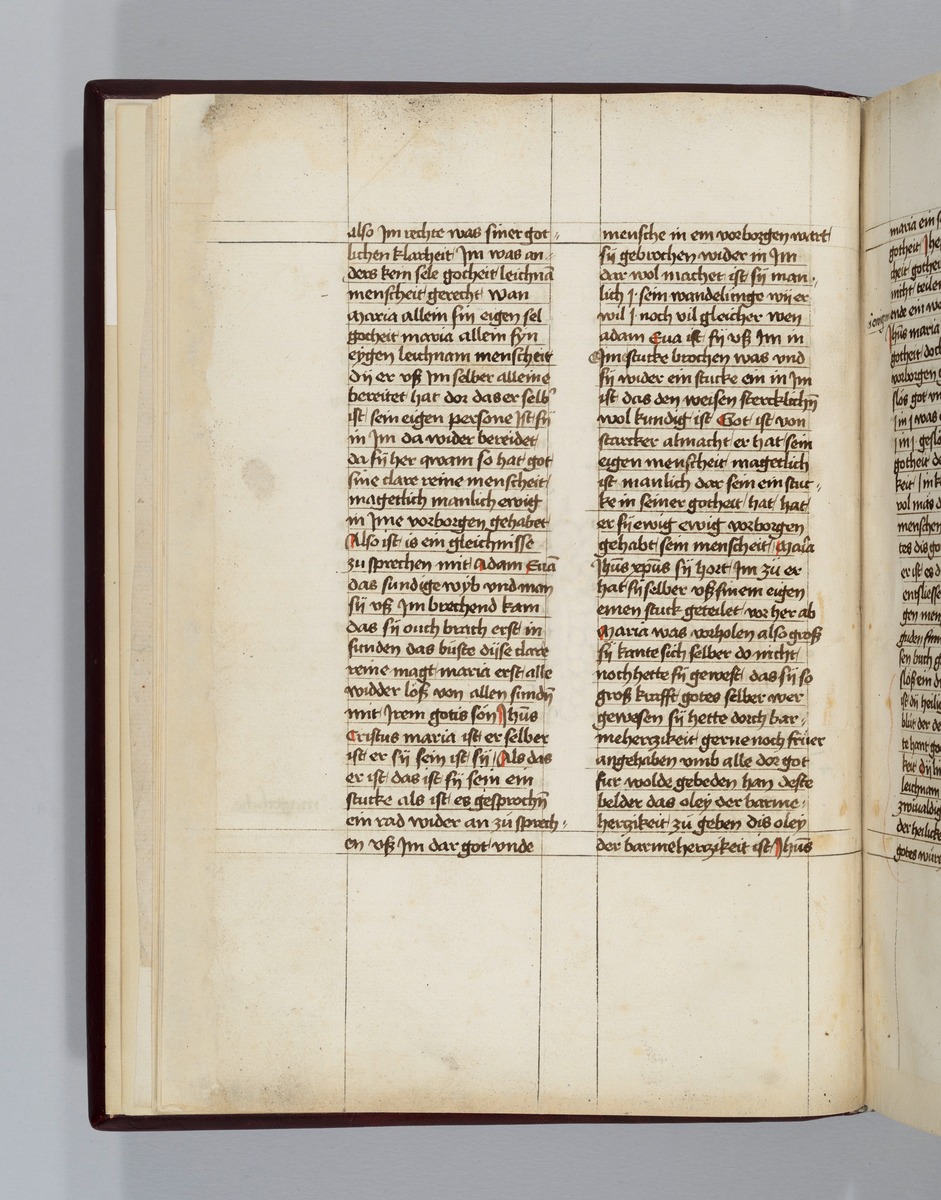 also Jm rechte was siner got⸗
lichen klarheit Jm was an⸗
ders kein sele gotheit leichnā
menscheit gerecht wan
maria allein sin eigen sel
gotheit maria allein syn
eygen leichnam menscheit
dÿ er vß Jm selber alleine
bereitet hat dor das er selb'
ist sein eigen persone Jst sÿ
in Jm da wider bereidet
da sÿ her qwam so hat got
sine clare reine menscheit
magetlich manlich ewig
in Jme vorborgen gehabet
Also ist is ein gleichnisse
zu sprechen mit Adam Euā
das sundige wÿb vnd man
sÿ vß Jm brechend kam
das sÿ ouch brach erst in
sunden das buste dÿse clare
reine magt maria erst alle
widder löß von allen sundn̄
mit Jrem gotis sön Jhūs
Cristus maria ist er selber
ist er sÿ sein ist sÿ Als das
er ist das ist sÿ sein ein
stucke als ist es gesprochn̄
ein rad wider an zü sprech⸗
en vß Jm dar got vnde
mensche in em vorborgen wart
sÿ gebrochen wider in Jm
dar wol machet ist sÿ man⸗
lich J sein wandelunge wÿ er
wil J noch vil gleicher wen
adam Eua ist sÿ vß Jm in
Eim stucke brochen was vnd
sÿ wider ein stucke ein in Jm
ist das den weisen stercklichn̄
wol kundig ist Got ist von
starcker almacht er hat sein
eigen menscheit magetlich
ist manlich dar sein ein stuc⸗
ke in seiner gotheit hat hat
er sÿ ewig ewig vorborgen
gehabt sein menscheit Maria
Jhūs xpūs sÿ hort Jm zü er
hat sÿ selber vß sinem eigen
einen stuck geteilet vor her ab
Maria was vorholen also groß
sÿ kante sich selber do nicht
noch hette sÿ gewest das sÿ so
groß krafft gotes selber wer
gewesen sÿ hette dorch bar⸗
meherczikeit gerne noch früer
angehaben vmb alle dor got
fur wolde gebeden han deste
belder das oleÿ der barme⸗
herczikeit zü geben dis oleÿ
der barmeherczikeit ist Jhūs
maria ein
gotheit
cheit gother
nicht teilen
ende ein
Jhūs maria
gotheit doch
vorborgen
slos got
J in J was
J in J
gotheit
keit
vol
menschen
tes dis
er ist es
entsliesse
gen men
guden
sen buch
sloß ein
ist dÿ heili
blut der
te hant
keit
leichnam
zwiualdig
der heilich
gotes